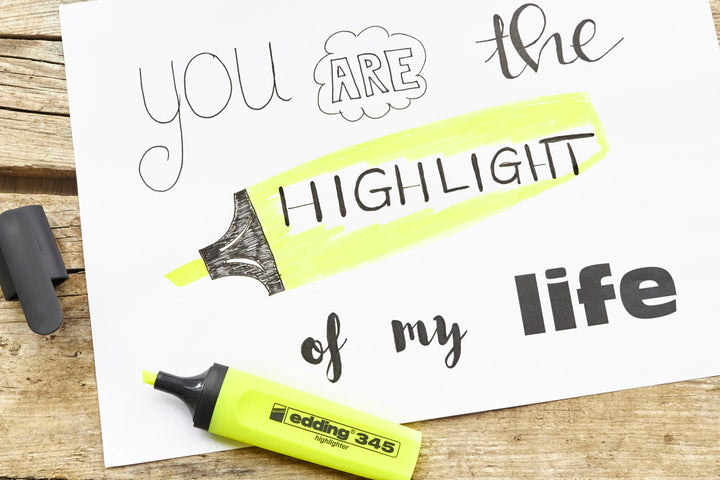 you ARE the
HIGHLIGHT
of my life
edding® 345
highlighter